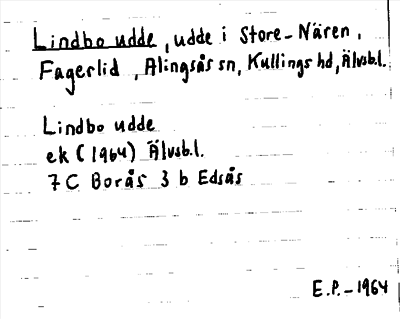 Lindbo udde, udde i Store-Nären,
Fagerlid, Alingsås sn, Kullings hd, Älvsb.l.
Lindbo udde
ek (1964) Älvsb.l.
7 C Borås 3 b Edsås
E.P. - 1964